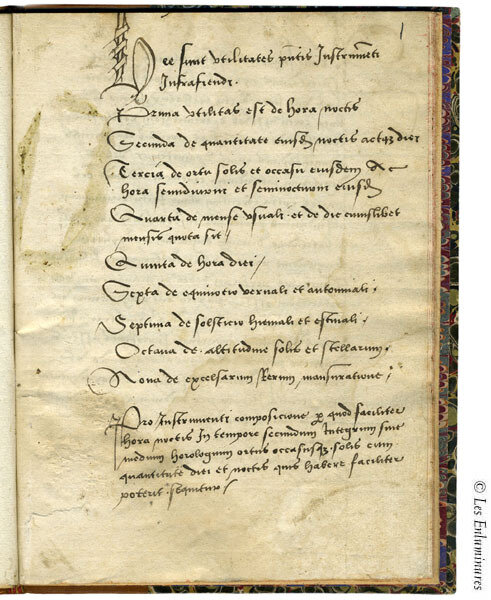 1
Hec sunt utilitates pntis Instrumeti
Infrafiendi.
Prima utilitas est de hora noctis
Secunda de quantitate eiusdm noctis atqz diei
Tercia de ortu solis et occasu eiusdem Ac
hora semidiurni et seminocturni eiusdm
Quarta de mense usuali et de die cuiuslibet
mensis quota sit /
Quinta de hora diei /
Sexta de equinotio vernali et autonnali ;
Septima de solsticio hiemali et estivali ;
Octava de altitudine solis et stellarum ;
Nona de excelsarum rerum mansuratione ;
Pro Instrumenti composicione per quod faciliter
hora noctis In tempore secundum Integrum sive
medium horologium ortus occasusqz solis cum
quantitate diei et noctis quis habere faciliter
poterit sequitur /
© Les Enluminures